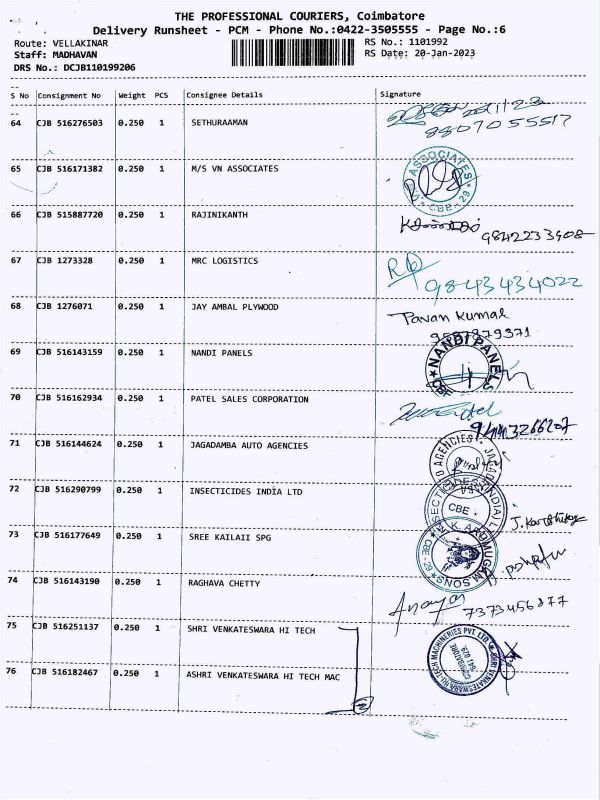 THE PROFESSIONAL COURIERS, Coimbatore
Delivery Runsheet - PCM - Phone No.:0422-3505555 - Page No.:6
Route: VELLAKINAR RS No.: 1101992
Staff: MADHAVAN RS Date: 20-Jan-2023
DRS No.: DCJB110199206
S No Consignment No Weight PCS Consignee Details Signature
64 CJB 516276503 0.250 1 SETHURAAMAN
8807055517
65 CJB 516171382 0.250 1 M/S VN ASSOCIATES ASSOCIATES CBE-29
66 CJB 515887720 0.250 1 RAJINIKANTH
9842233908
67 CJB 1273328 0.250 1 MRC LOGISTICS
9843434022
68 CJB 1276071 0.250 1 JAY AMBAL PLYWOOD Pavan Kumar
69 CJB 516143159 0.250 1 NANDI PANELS NANDI PANELS CBE
70 CJB 516162934 0.250 1 PATEL SALES CORPORATION
71 CJB 516144624 0.250 1 JAGADAMBA AUTO AGENCIES
72 CJB 516290799 0.250 1 INSECTICIDES INDIA LTD CBE
73 CJB 516177649 0.250 1 SREE KAILAII SPG ARUMUGAM SONS
74 CJB 516143190 0.250 1 RAGHAVA CHETTY
7373456877
75 CJB 516251137 0.250 1 SHRI VENKATESWARA HI TECH
SHRI VENKATESWARA HI-TECH MACHINERIES PVT LTD. COIMBATORE 641 029
76 CJB 516182467 0.250 1 ASHRI VENKATESWARA HI TECH MAC